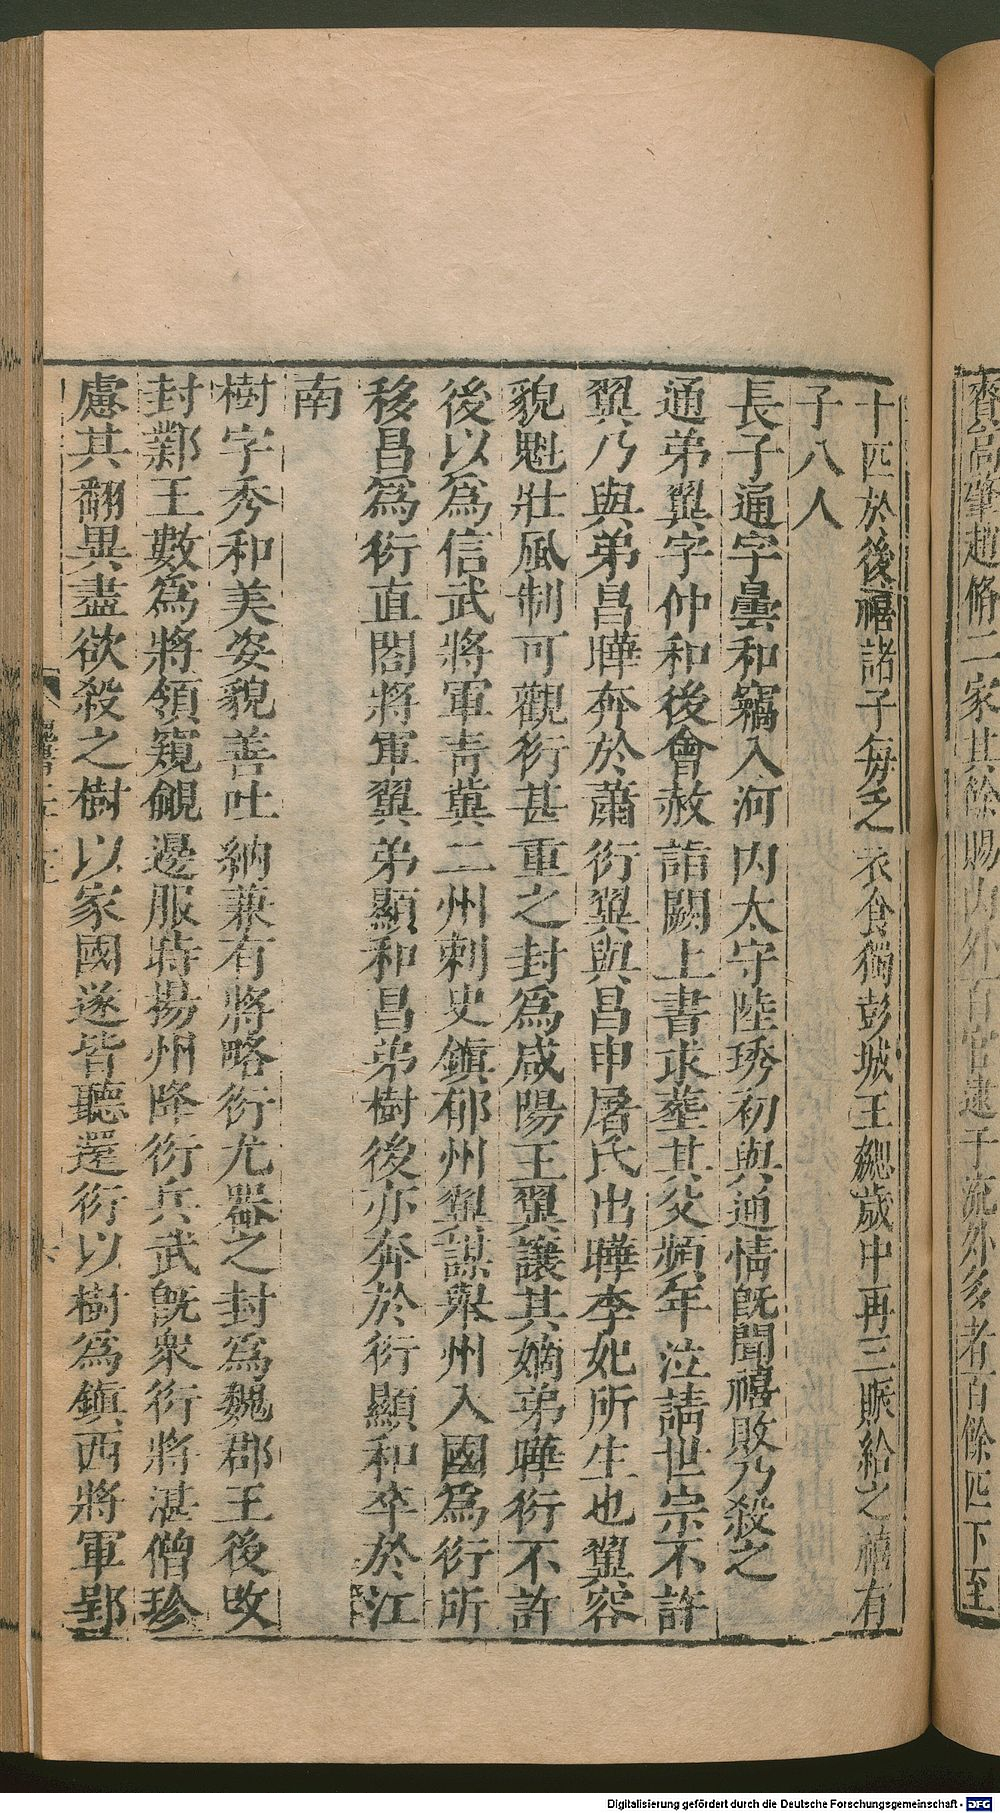 賚高肇趙脩二家其餘賜內外百官逮于流外多者百餘匹下至
十匹於後禧諸子每乏衣食獨彭城王勰歲中再三賑給之禧有
子八人
長子通字曇和竊入河內太守陸琇初與通情既聞禧敗乃殺之
通弟翼字仲和後會赦詣闕上書求葬其父頻年泣請世宗不許
翼乃與弟昌曄奔於蕭衍翼與昌申屠氏出曄李妃所生也翼容
貌魁壯風制可觀衍甚重之封為咸陽王翼讓其嫡弟曄衍不許
後以為信武將軍青冀二州刺史鎮郁州翼謀舉州入國為衍所
移昌為衍直閤將軍翼弟顯和昌弟樹後亦奔於衍顯和卒於江
南
樹字秀和美姿貌善吐納兼有將略衍尤器之封為魏郡王後改
封鄴王數為將領窺覦邊服時揚州降衍兵武既衆衍將湛僧珍
慮其翻異盡欲殺之樹以家國遂皆聽還衍以樹為鎮西將軍郢
Digitalisierung gefördert durch die Deutsche Forschungsgemeinschaft - DFG